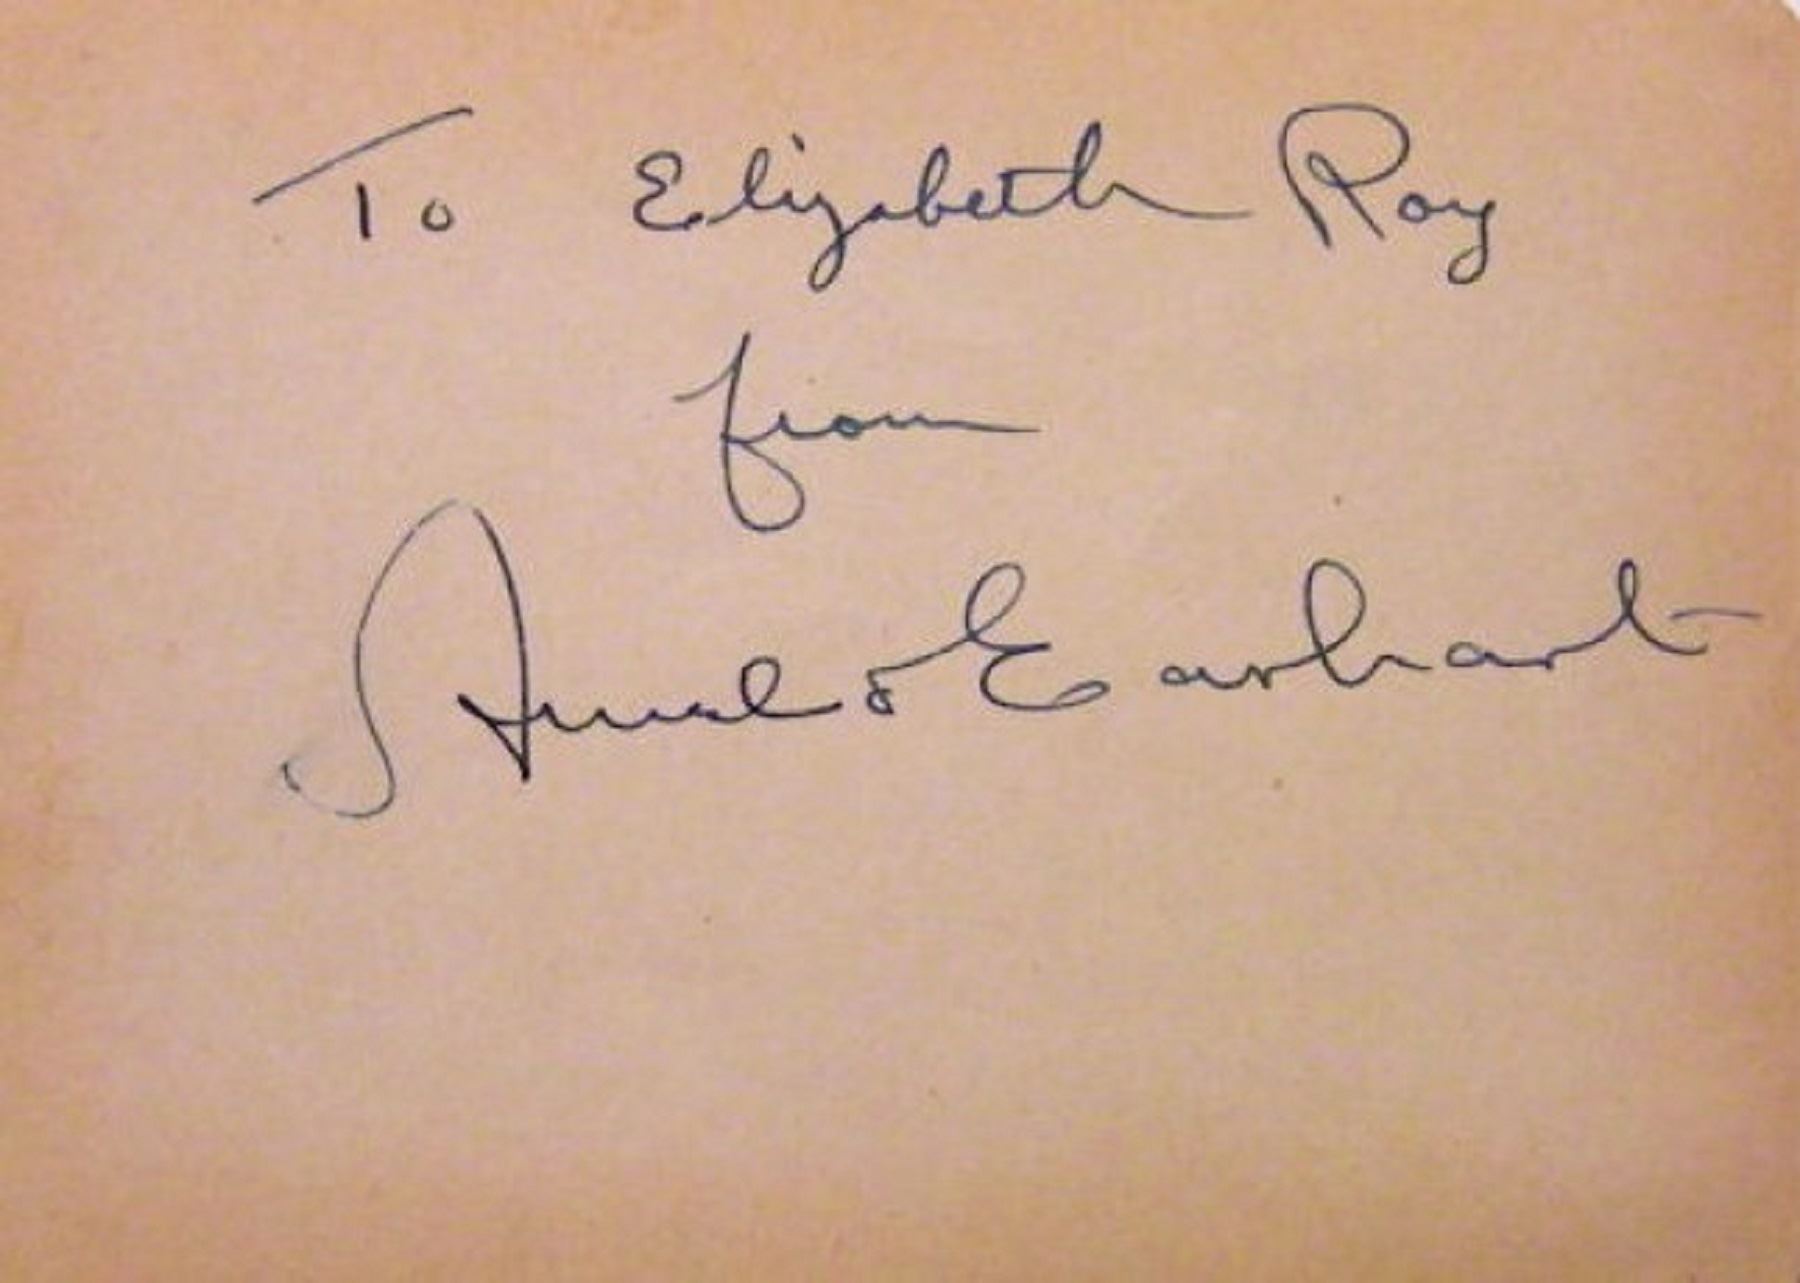 To Elizabeth Roy
from
Amelia Earhart